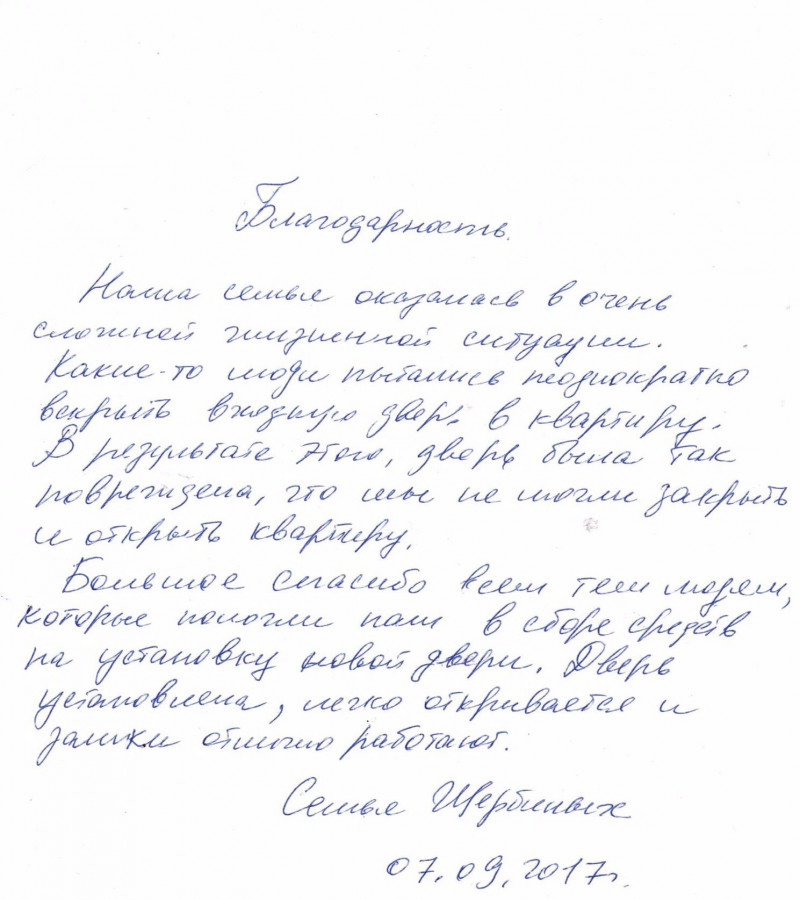 Благодарность.
Наша семья оказалась в очень
сложной жизненной ситуации.
Какие-то люди пытались неоднократно
вскрыть входную дверь в квартиру.
В результате этого, дверь была так
повреждена, что мы не могли закрыть
и открыть квартиру.
Большое спасибо всем тем людям,
которые помогли нам в сборе средств
на установку новой двери. Дверь
установлена, легко открывается и
замки отлично работают.
Семья Щербиных
07.09.2017г.